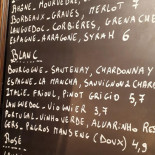 BORDEAUX-GRAVES, MERLOT 7
LANGUEDOC, CORBIÈRES, GRENACHE
ESPAGNE, ARAGONE, SYRAH 6
BLANC
BOURGOGNE-SAUTENAY, CHARDONNAY
ESPAGNE-LA MANCHA, SAUVIGNON
ITALIE, FRIOUL, PINOT GRIGIO 5,7
LANGUEDOC-VIOGNIER 3,7
PORTUGAL-VINHO VERDE, ALVARINHO
GERS-PACROS MANSENG (DOUX) 4,9
ROSÉ